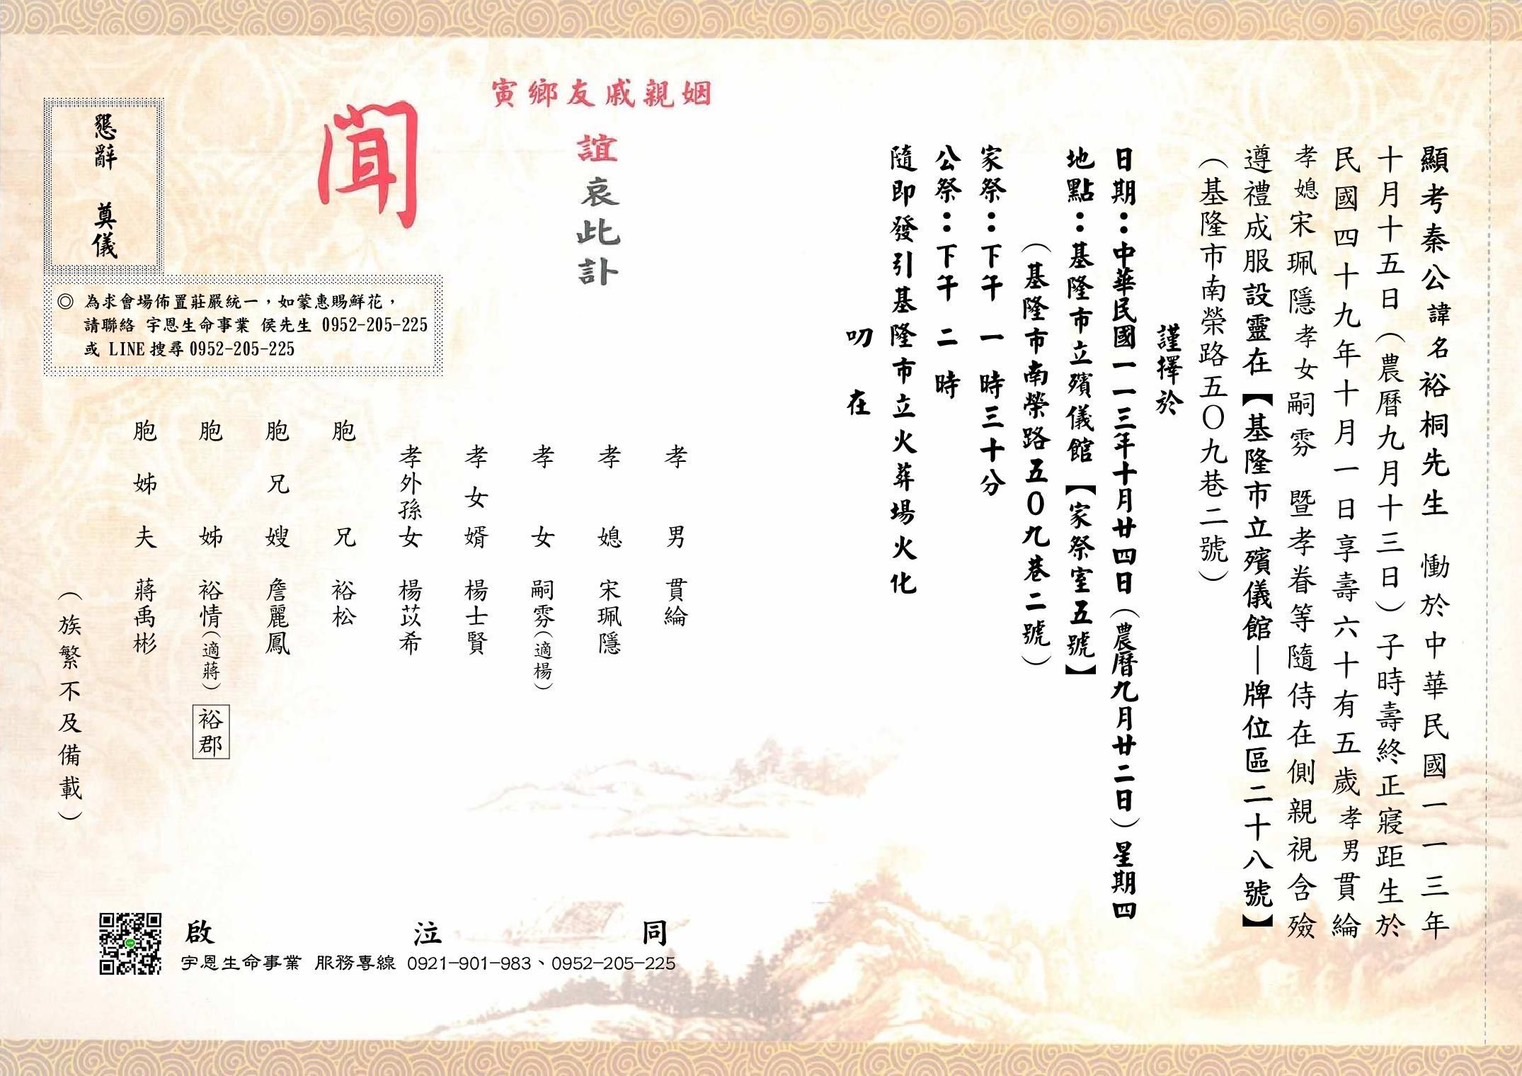 顯考秦公諱名裕桐先生　慟於中華民國一一三年
十月十五日（農曆九月十三日）子時壽終正寢距生於
民國四十九年十月一日享壽六十有五歲孝男貫綸
孝媳宋珮隱孝女嗣雰　暨孝眷等隨侍在側親視含殮
遵禮成服設靈在【基隆市立殯儀館—牌位區二十八號】
（基隆市南榮路五〇九巷二號）
謹擇於
日期：中華民國一一三年十月廿四日（農曆九月廿二日）星期四
地點：基隆市立殯儀館【家祭室五號】
（基隆市南榮路五〇九巷二號）
家祭：下午　一時三十分
公祭：下午　二　時
隨即發引基隆市立火葬場火化
叨　在
寅鄉友戚親姻
誼
哀此訃
聞
孝　男　貫綸
孝　媳　宋珮隱
孝　女　嗣雰（適楊）
孝女婿　楊士賢
孝外孫女　楊苡希
胞　兄　裕松
胞兄嫂　詹麗鳳
胞　姊　裕情（適蔣）裕郡
胞姊夫　蔣禹彬
（族繁不及備載）
懇辭　奠儀
◎ 為求會場佈置莊嚴統一，如蒙惠賜鮮花，
請聯絡 宇恩生命事業 侯先生 0952-205-225
或 LINE 搜尋 0952-205-225
啟　泣　同
宇恩生命事業 服務專線 0921-901-983、0952-205-225